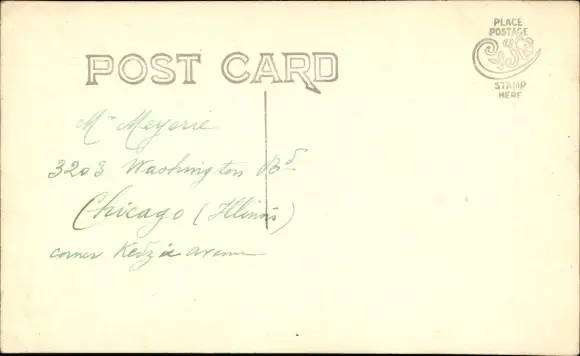 PLACE
POSTAGE
STAMP
HERE
POST CARD
Mr Meyorie
3203 Washington Bd
Chicago (Illinois)
corner Kedzie avenue